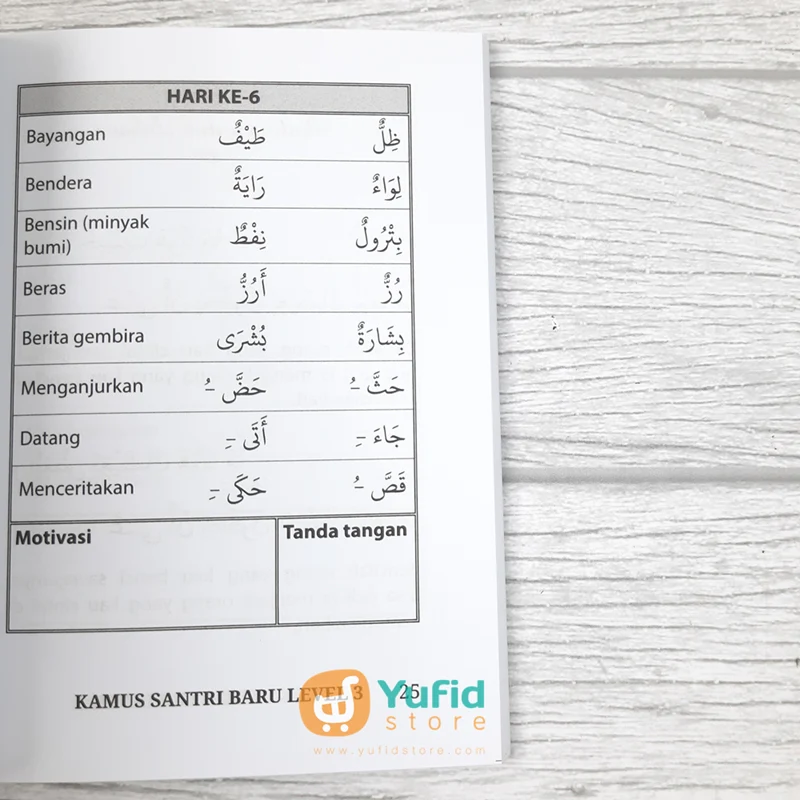 HARI KE-6
Bayangan طَيْفٌ ظِلٌّ
Bendera رَايَةٌ لِوَاءٌ
Bensin (minyak
bumi) نِفْطٌ بِتْرُولٌ
Beras أَرُزٌّ رُزٌّ
Berita gembira بُشْرَى بِشَارَةٌ
Menganjurkan حَضَّ ـُ حَثَّ ـُ
Datang أَتَى ـِ جَاءَ ـِ
Menceritakan حَكَى ـِ قَصَّ ـُ
Motivasi Tanda tangan
KAMUS SANTRI BARU LEVEL 3 25
Yufid
store
www.yufidstore.com